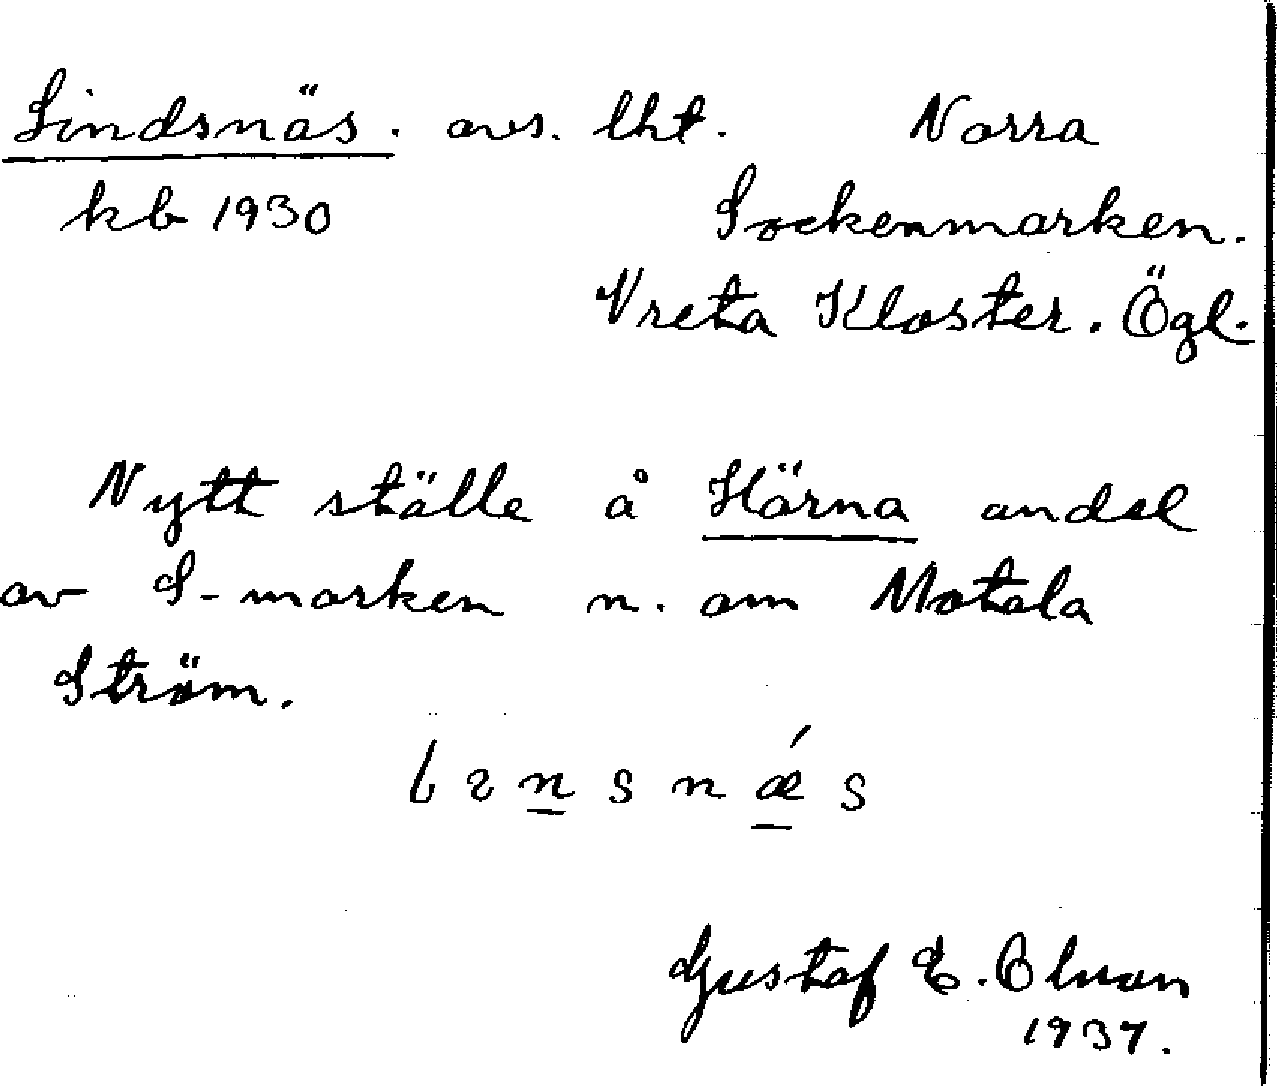 Lindsnäs. avs. lht. Norra
kb 1930 Sockenmarken.
Vreta Kloster. Ögl.
Nytt ställe å Härna andel
av S-marken n. om Motala
Ström.
Gustaf E. Olsson
1937.